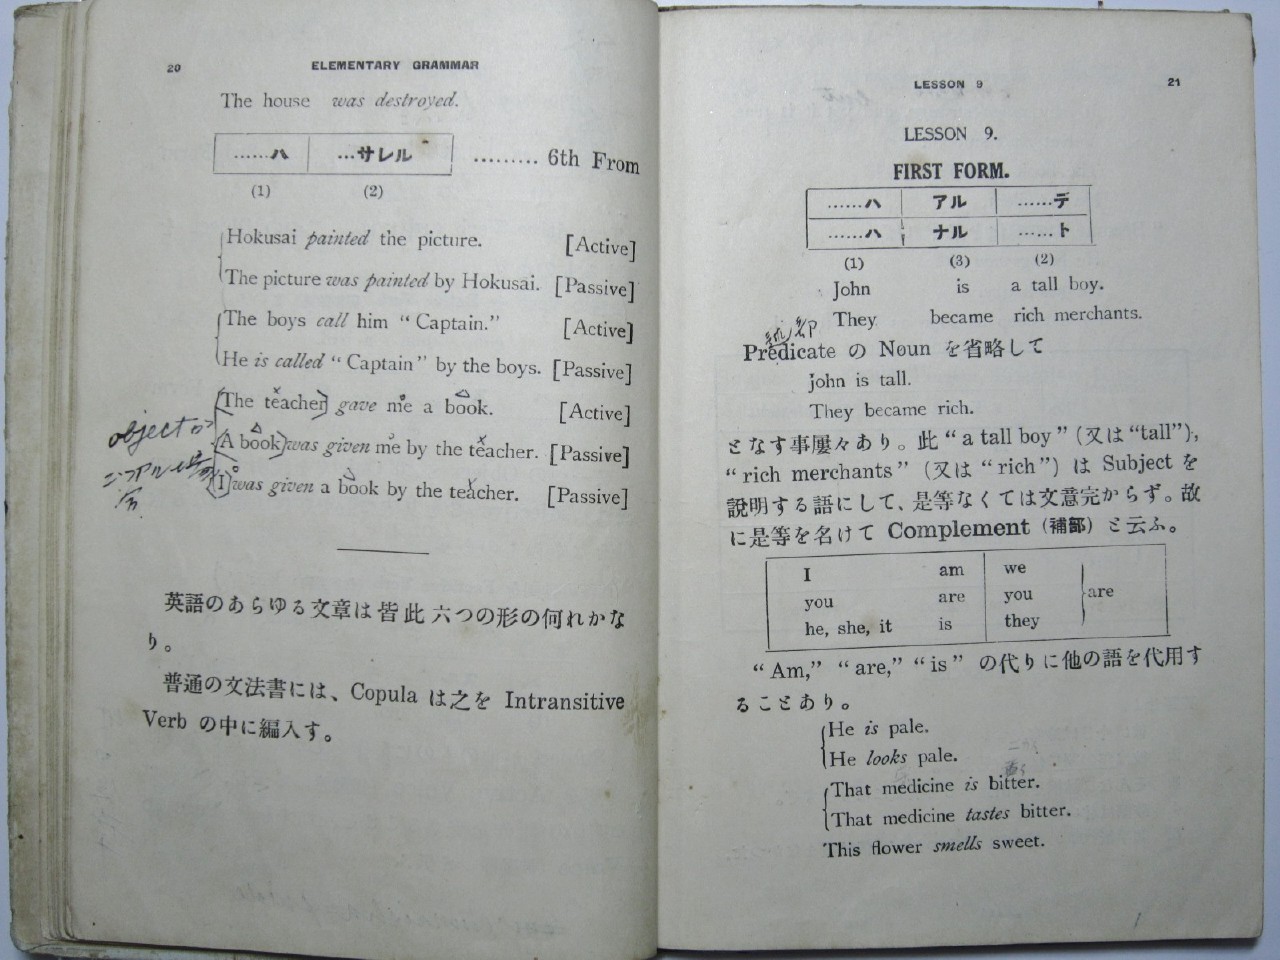 20 ELEMENTARY GRAMMAR
The house was destroyed.
……ハ …サレル ……… 6th From
(1) (2)
Hokusai painted the picture. [Active]
The picture was painted by Hokusai. [Passive]
The boys call him “Captain.” [Active]
He is called “Captain” by the boys. [Passive]
The teacher gave me a book. [Active]
object が
A book was given me by the teacher. [Passive]
I was given a book by the teacher. [Passive]
英語のあらゆる文章は皆此六つの形の何れかな
り。
普通の文法書には、Copula は之を Intransitive
Verb の中に編入す。
LESSON 9 21
LESSON 9.
FIRST FORM.
……ハ アル ……デ
……ハ ナル ……ト
(1) (3) (2)
John is a tall boy.
They became rich merchants.
Predicate の Noun を省略して
john is tall.
They became rich.
となす事屢々あり。此 “a tall boy” (又は “tall”),
“rich merchants” (又は “rich”) は Subject を
説明する語にして、是等なくては文意完からず。故
に是等を名けて Complement (補部) と云ふ。
I am we
you are you are
he, she, it is they
“Am,” “are,” “is” の代りに他の語を代用す
ることあり。
He is pale.
He looks pale.
That medicine is bitter.
That medicine tastes bitter.
This flower smells sweet.